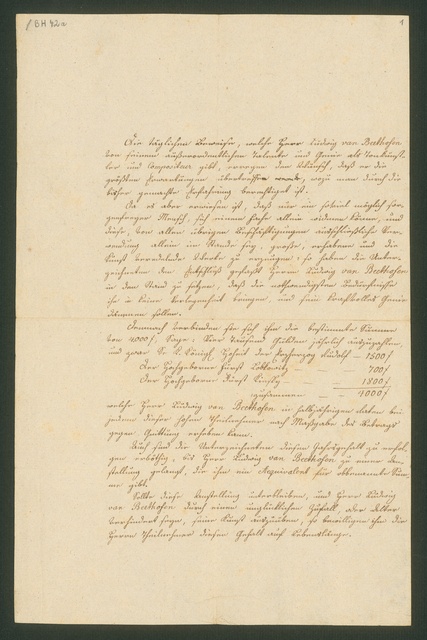 BH 42a
1
Die täglichen Beweise, welche Herr Ludwig van Beethoven
von seinem außerordentlichen Talente und Genie als Tonkünst-
ler und Compositeur gibt, erregen den Wunsch, daß er die
größten Erwartungen übertreffen werde, wozu man durch die
bisher gemachte Erfahrung berechtiget ist.
Da es aber erwiesen ist, daß nur ein soviel möglich sor-
genfreyer Mensch, sich einem Fache allein widmen könne, und
diese, von allen übrigen Beschäftigungen ausschließliche Ver-
wendung allein im Stande sey, große, erhabene und die
Kunst veredelnde Werke zu erzeugen; so haben die Unter-
zeichneten den Entschluß gefaßt Herrn Ludwig van Beethoven
in den Stand zu setzen, daß die nothwendigsten Bedürfnisse
ihn in keine Verlegenheit bringen, und sein kraftvolles Genie
hemmen sollen.
Demnach verbinden sie sich ihm die bestimmte Summe
von 4000 f, Sage: Vier tausend Gulden jährlich auszuzahlen,
und zwar Se k. Königl. Hoheit der Erzherzog Rudolf — 1500 f
Der Hochgeborne Fürst Lobkowitz — 700 f
Der Hochgeborne Fürst Kinsky — 1800 f
zusammen — 4000 f
welche Herr Ludwig van Beethoven in halbjährigen Raten bei
jedem dieser hohen Theilnehmer nach Maßgabe des Beitrags
gegen Quittung erheben kann.
Auch sind die Unterzeichneten diesen Jahrgehalt zu erfol-
gen erböthig, bis Herr Ludwig van Beethoven zu einer An-
stellung gelangt, die ihm ein Aequivalent für obbenannte Sum-
me gibt.
Sollte diese Anstellung unterbleiben, und Herr Ludwig
van Beethoven durch einen unglücklichen Zufall, oder Alter
verhindert seyn, seine Kunst auszuüben, so bewilligen ihm die
Herrn Theilnehmer diesen Gehalt auf Lebenslänge.